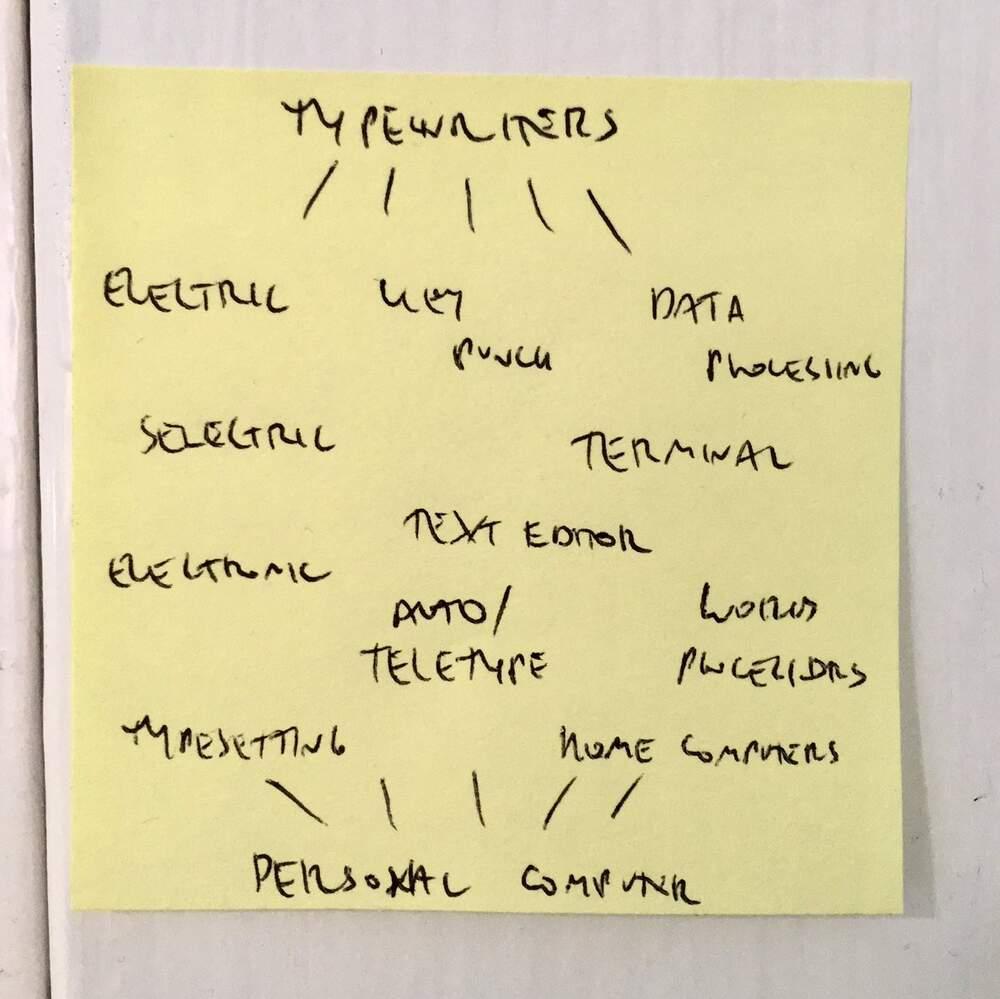 TYPEWRITERS
ELECTRIC KEY DATA
PUNCH PROCESSING
SELECTRIC TERMINAL
TEXT EDITOR
ELECTRONIC
AUTO/ WORD
TELETYPE PROCESSORS
TYPESETTING HOME COMPUTERS
PERSONAL COMPUTER